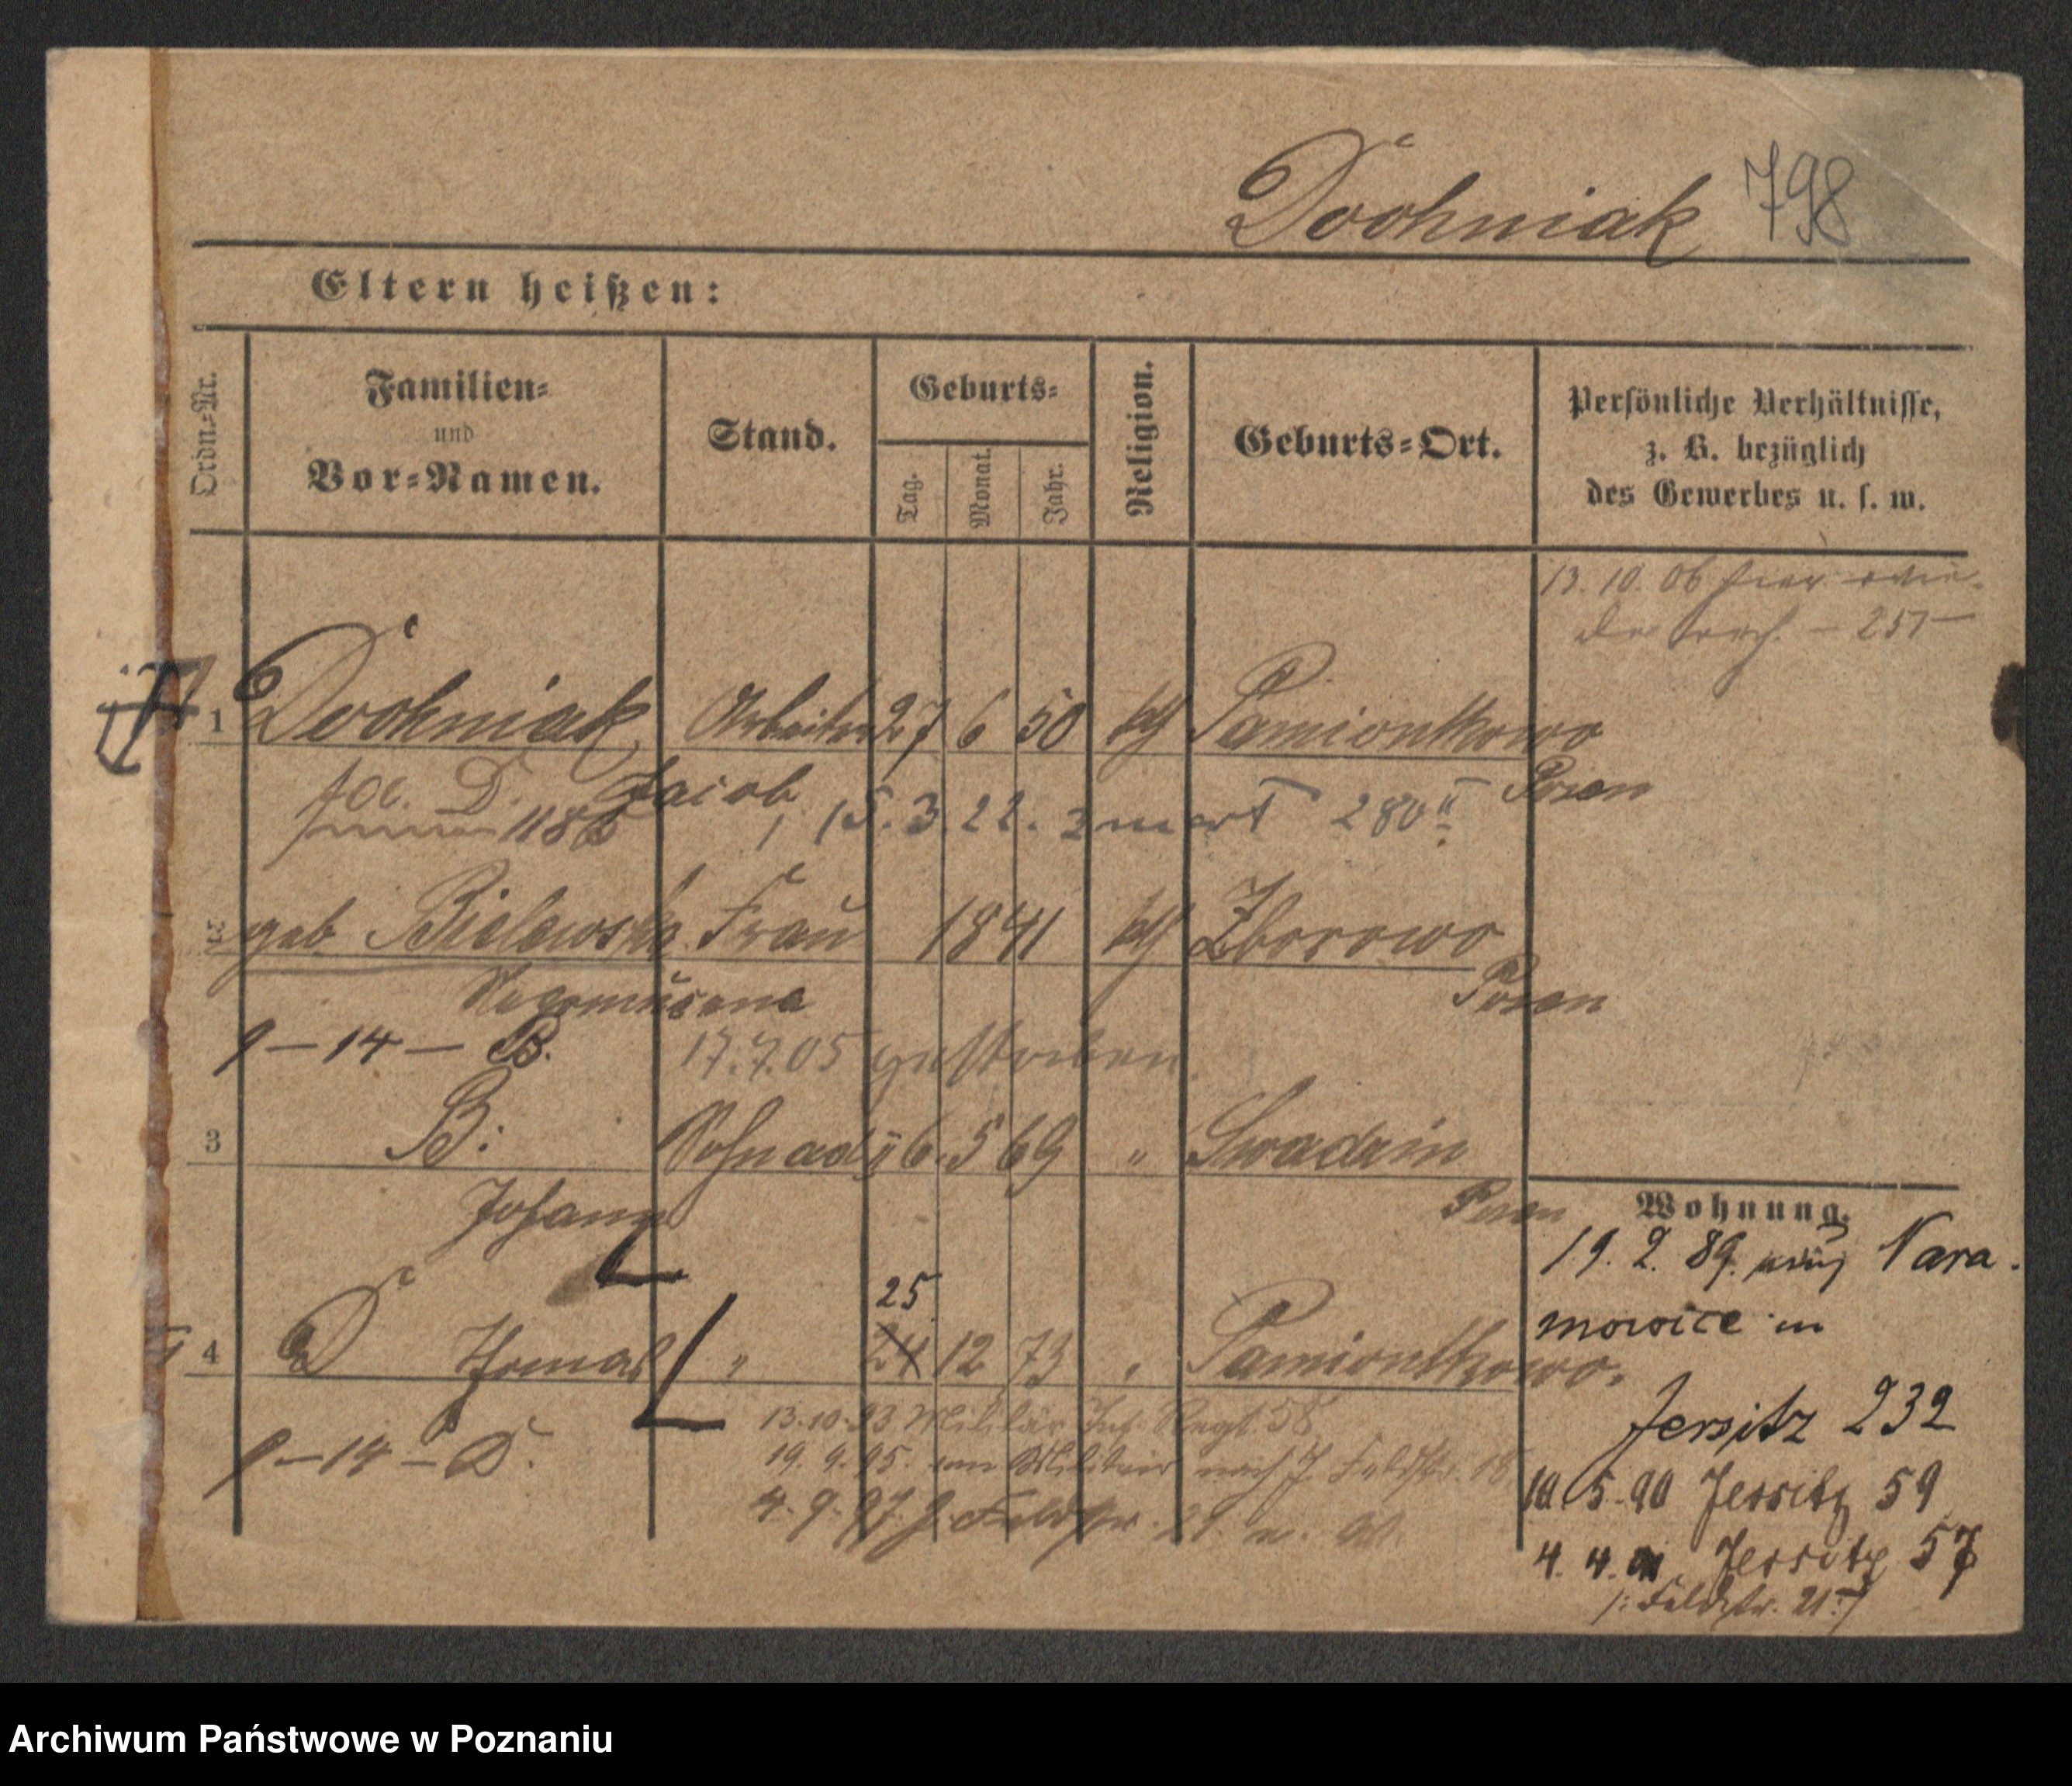 Dvohniak 798
Eltern heißen:
Ordn.-Nr. Familien- und Vor-Namen. Stand. Geburts- Tag. Monat. Jahr. Religion. Geburts-Ort. Persönliche Verhältnisse, z. B. bezüglich des Gewerbes u. s. w.
13. 10. 06 hier
- 257 -
1 Dvohniak Arbeiter 27 6 50 kth Pamiontkowo
Jacob Posen
1186 15. 3. 22. 280
2 geb Bielewska Frau 1841 kth Zborowo
Posen
1-14- B. 17.7.05 gestorben
3 B: Sohn ad 1 6. 5 69 " Swadzim
Johann Posen
Wohnung.
19. 2. 89. Nara.
25
4 D Thomas " 24 12 73 " Pamiontkowo.
mowice in
Jersitz 232
13.10.93 Militär Inf. Regt. 58
1-14- D. 19. 9. 95. vom Militair nach J. Feldstr. 18
10. 5. 90 Jersitz 59
4. 9. 97. J. Feldstr. 21.
4. 4. 91 Jersitz 57
/: Feldstr. 21 :/
Archiwum Państwowe w Poznaniu